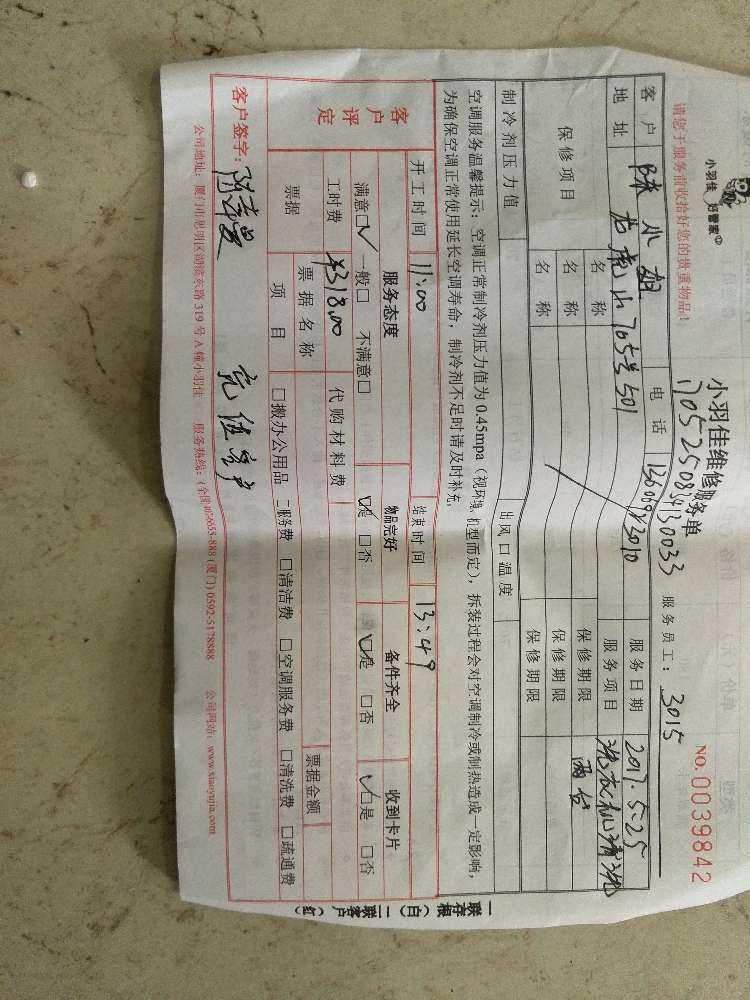 小羽佳 好管家
请您于服务前收拾好您的贵重物品!
小羽佳维修服务单
NO.0039842
170525083430033
服务员工: 3015
客户 陈小姐 电话 服务日期 2017.5.25
地址 古虎山705号501 服务项目 洗衣机清洗
两台
保修项目 名称 保修期限
名称 保修期限
名称 保修期限
制冷剂压力值 出风口温度
空调服务温馨提示: 空调正常制冷剂压力值为0.45mpa(视环境, 机型而定), 拆装过程会对空调制冷或制热造成一定影响,
为确保空调正常使用延长空调寿命, 制冷剂不足时请及时补充.
开工时间 11:00 结束时间 13:49
客户评定 服务态度 物品完好 备件齐全 收到卡片
满意□ 一般□ 不满意□ □是 □否 □是 □否 □是 □否
工时费 ¥318.00 代购材料费
票据 票据名称 票据金额
项目 □搬办公用品 □服务费 □清洁费 □空调服务费 □清洗费 □疏通费
客户签字: 充值客户
公司地址: 厦门市思明区湖滨东路319号A幢小羽佳 服务热线: (全国)4006655-888 (厦门) 0592-5178888 公司网站: www.xiaoyujia.com
一联存根(白) 二联客户(红)